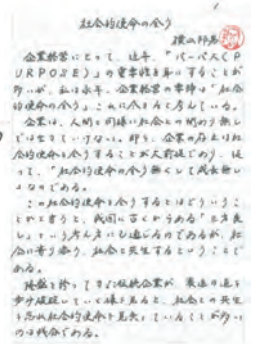 社会的使命の全う
横山
企業経営にとって、近年、「パーパス(P
URPOSE)」の重要性を耳にすることが
多いが、私は永年、企業経営の要諦は「社会
的使命の全う」、これに尽きると考えている。
企業は、人間と同様に社会との関わり無し
では生きていけない。即ち、企業の存在は社
会的使命を全うすることが大前提であり、従
って、「社会的使命の全う無くして成長無し」
なのである。
この社会的使命を全うするとはどういうこ
とかと言うと、我国に古くからある"三方良
し"という考え方にも通じるのであるが、社
会に寄り添う、社会と共生するということで
ある。
隆盛を誇ってきた伝統企業が、衰退の道を
歩み破綻していく様を見ると、社会との共生
を忘れ社会的使命を見失っていることが多い
のは残念である。